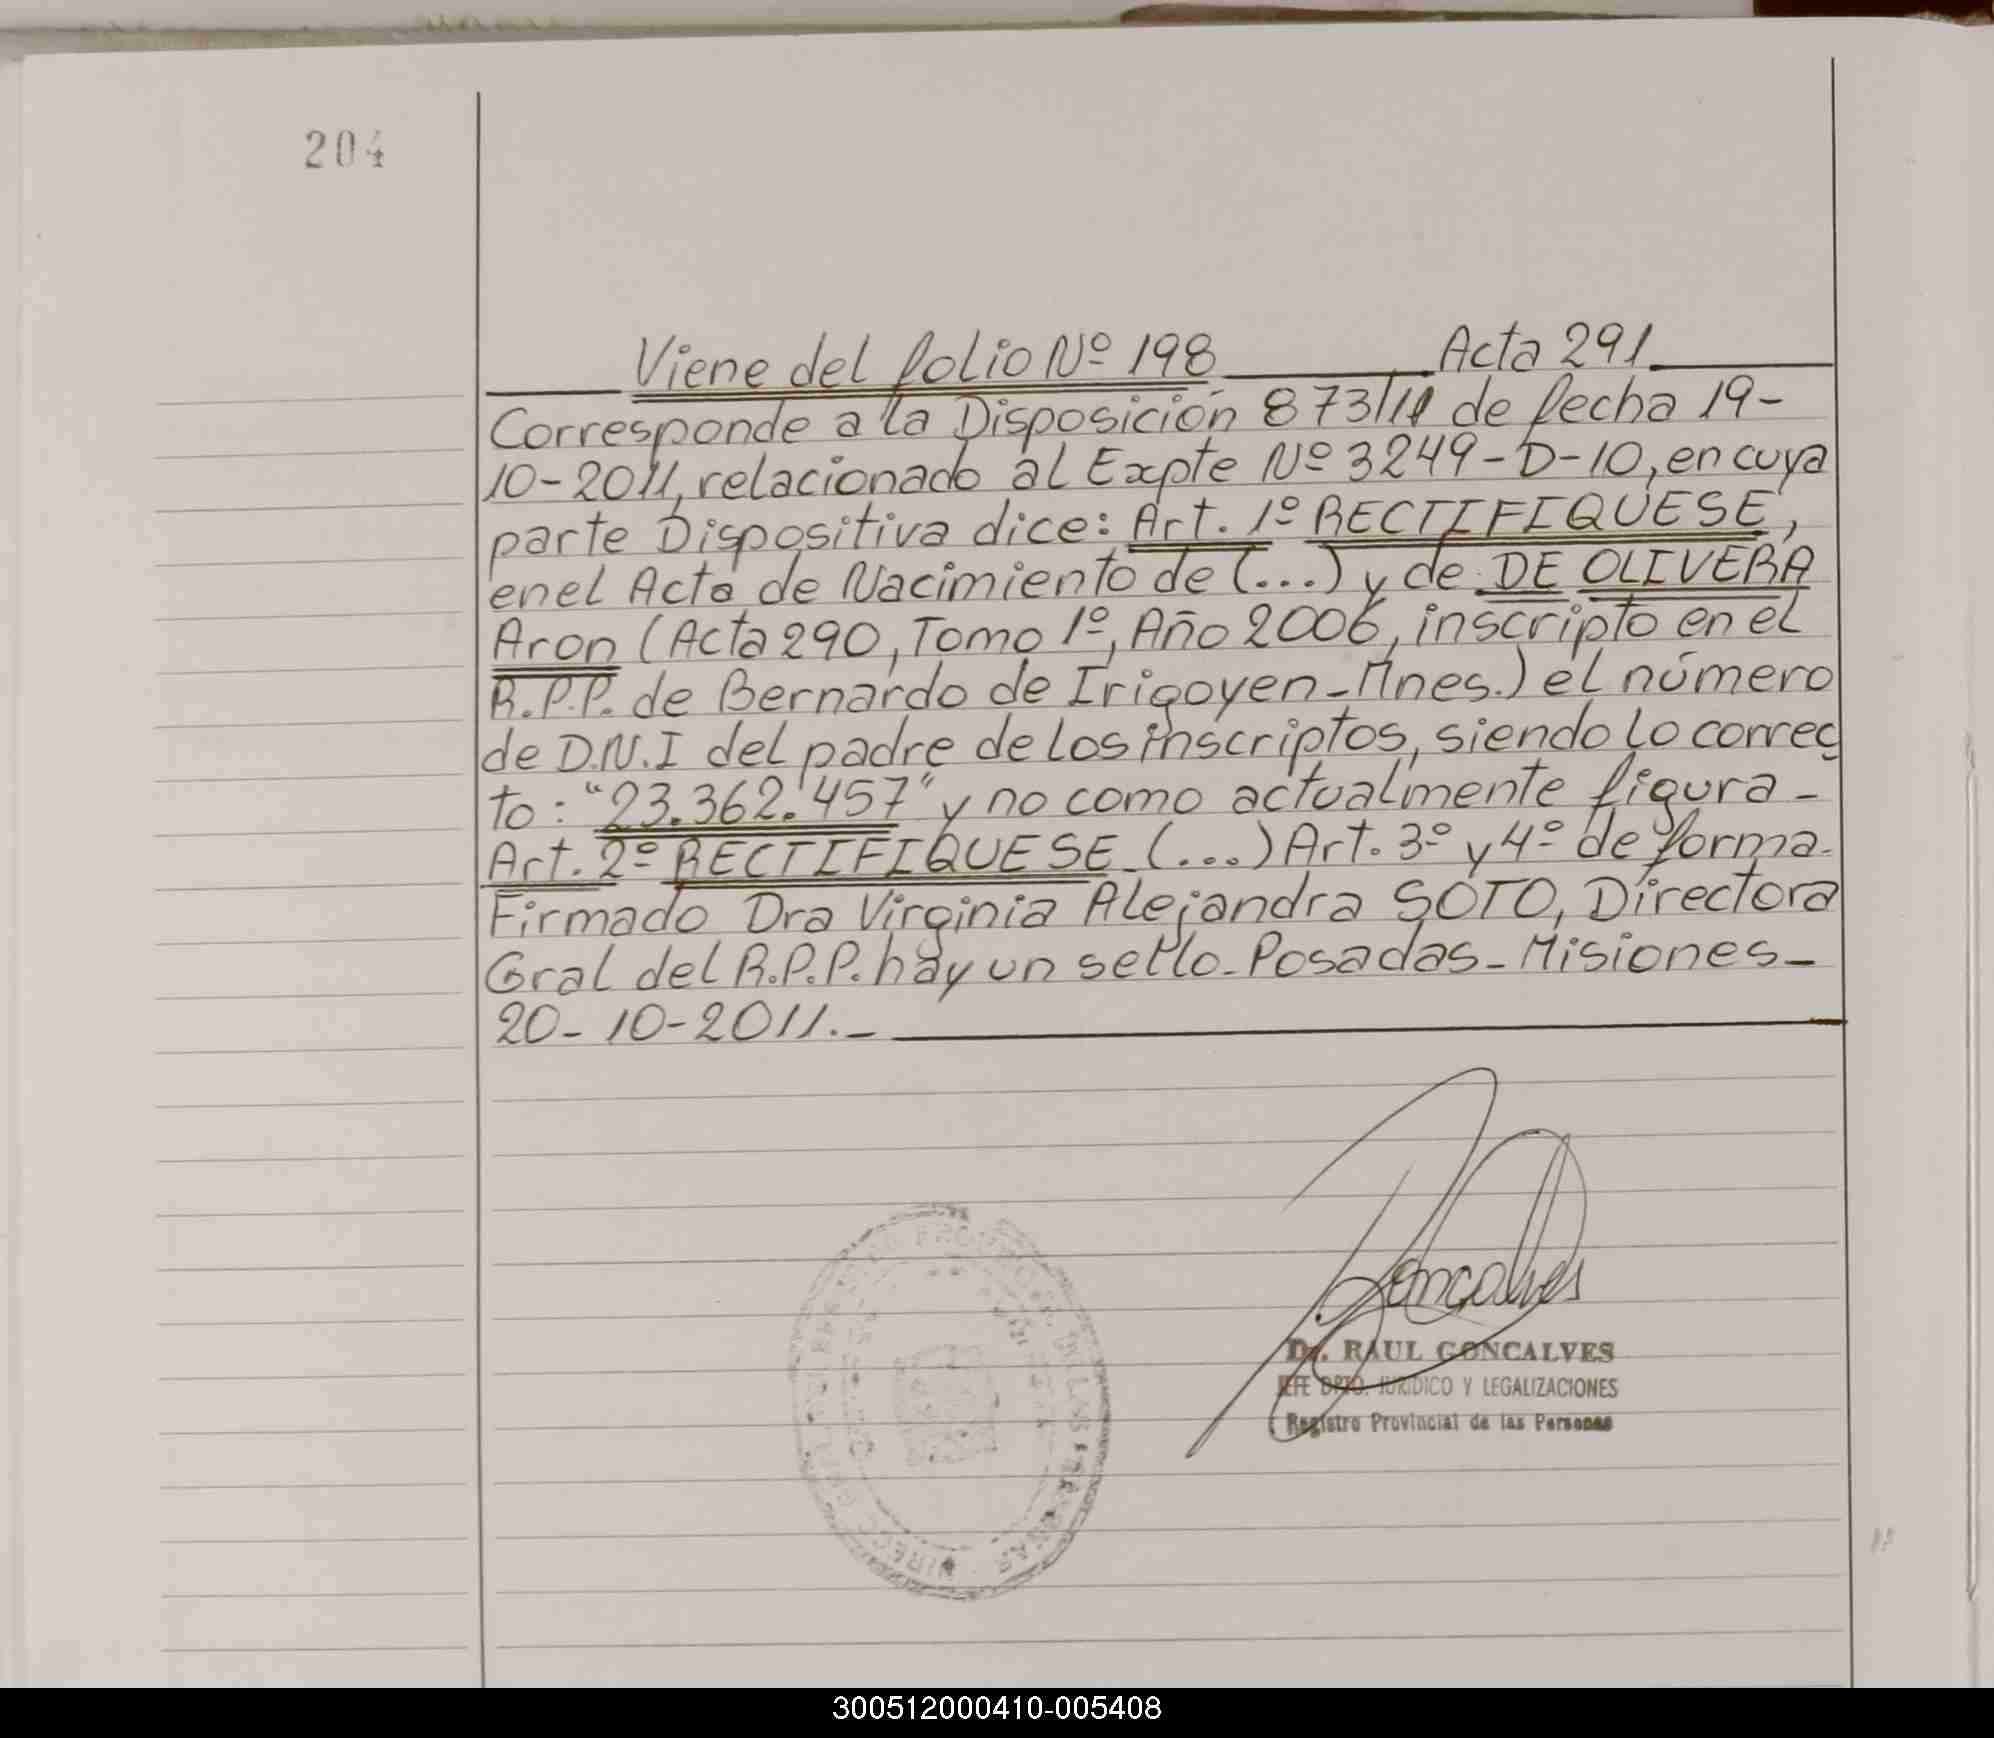 204
Viene del folio Nº 198 Acta 291
Corresponde a la Disposición 873/11 de fecha 19-
10-2011, relacionado al Expte Nº 3249-D-10, en cuya
parte Dispositiva dice: Art. 1º RECTIFIQUESE,
en el Acta de Nacimiento de (...) y de DE OLIVERA
Aron (Acta 290, Tomo 1º, Año 2006, inscripto en el
R.P.P. de Bernardo de Irigoyen-Mnes.) el número
de D.N.I del padre de los inscriptos, siendo lo correc
to: "23.362.457" y no como actualmente figura-
Art. 2º RECTIFIQUESE (...) Art. 3º y 4º de forma-
Firmado Dra Virginia Alejandra SOTO, Directora
Gral del R.P.P. hay un sello-Posadas-Misiones-
20-10-2011.-
Goncalves
Dr. RAUL GONCALVES
JEFE DPTO. JURIDICO Y LEGALIZACIONES
Registro Provincial de las Personas
300512000410-005408